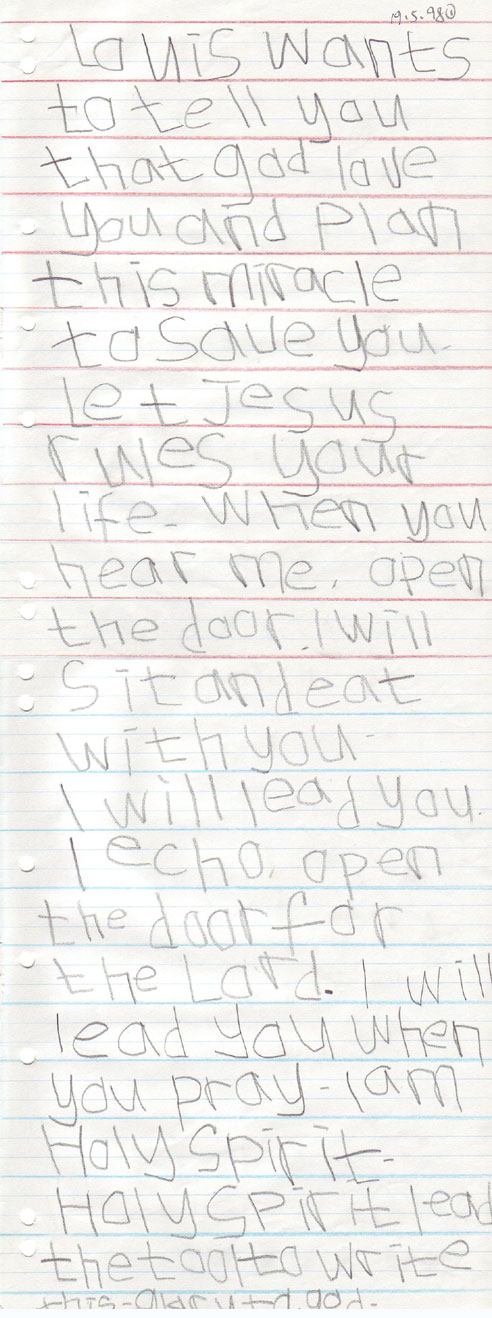 19.5.98①
Louis wants
to tell you
that god love
you and plan
this miracle
to save you.
Let Jesus
rules your
life. When you
hear me, open
the door. I will
Sit and eat
with you.
I will lead you.
I echo, open
the door for
the Lord. I will
lead you when
you pray. I am
Holy Spirit.
Holy Spirit lead
the tool to write
this.